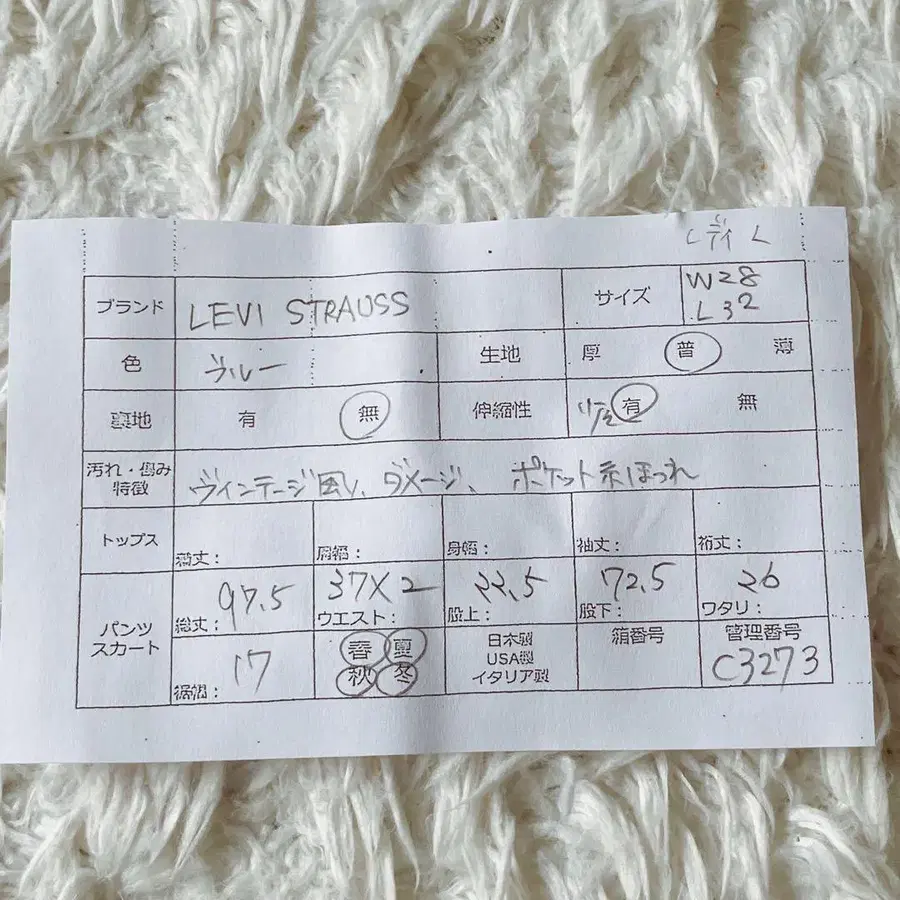 レディ L
ブランド LEVI STRAUSS サイズ W28
L32
色 ブルー 生地 厚 普 薄
裏地 有 無 伸縮性 有 無
汚れ・傷み
特徴 ヴィンテージ風、ダメージ、ポケット糸ほつれ
トップス 着丈: 肩幅: 身幅: 袖丈: 裄丈:
パンツ
スカート 総丈: 97.5 ウエスト: 37X2 股上: 22.5 股下: 72.5 ワタリ: 26
裾幅: 17 春 夏
秋 冬 日本製
USA製
イタリア製 箱番号 管理番号
C3273